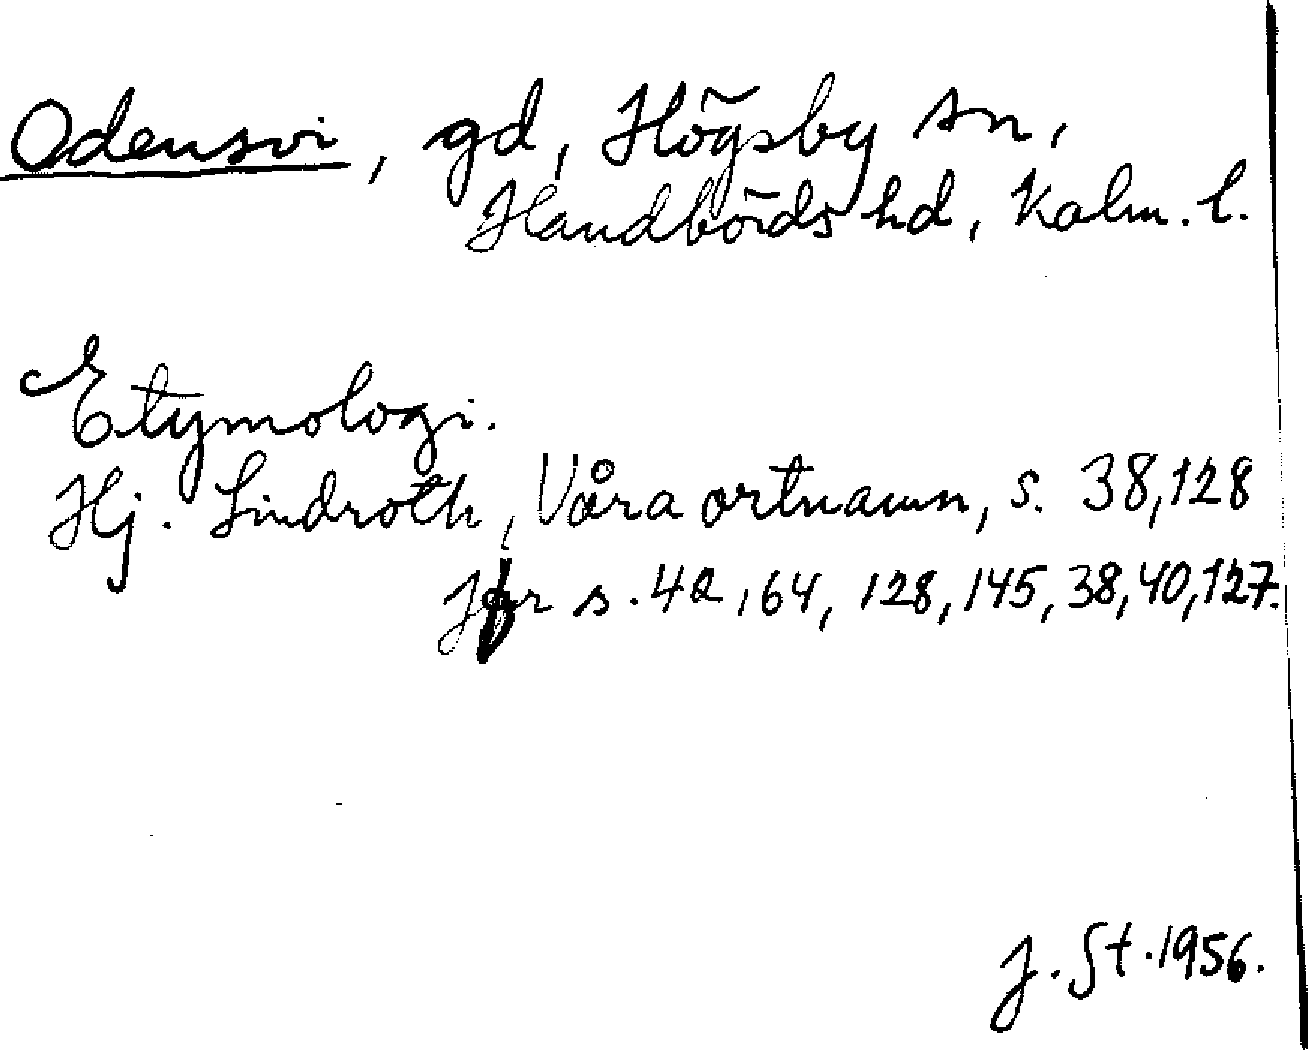 Odensvi, gd, Högsby sn,
Handbörds hd, Kalm. l.
Etymologi.
Hj. Lindroth, Våra ortnamn, s. 38,128
Jfr s. 42, 64, 128, 145, 38, 40, 127.
J. St. 1956.